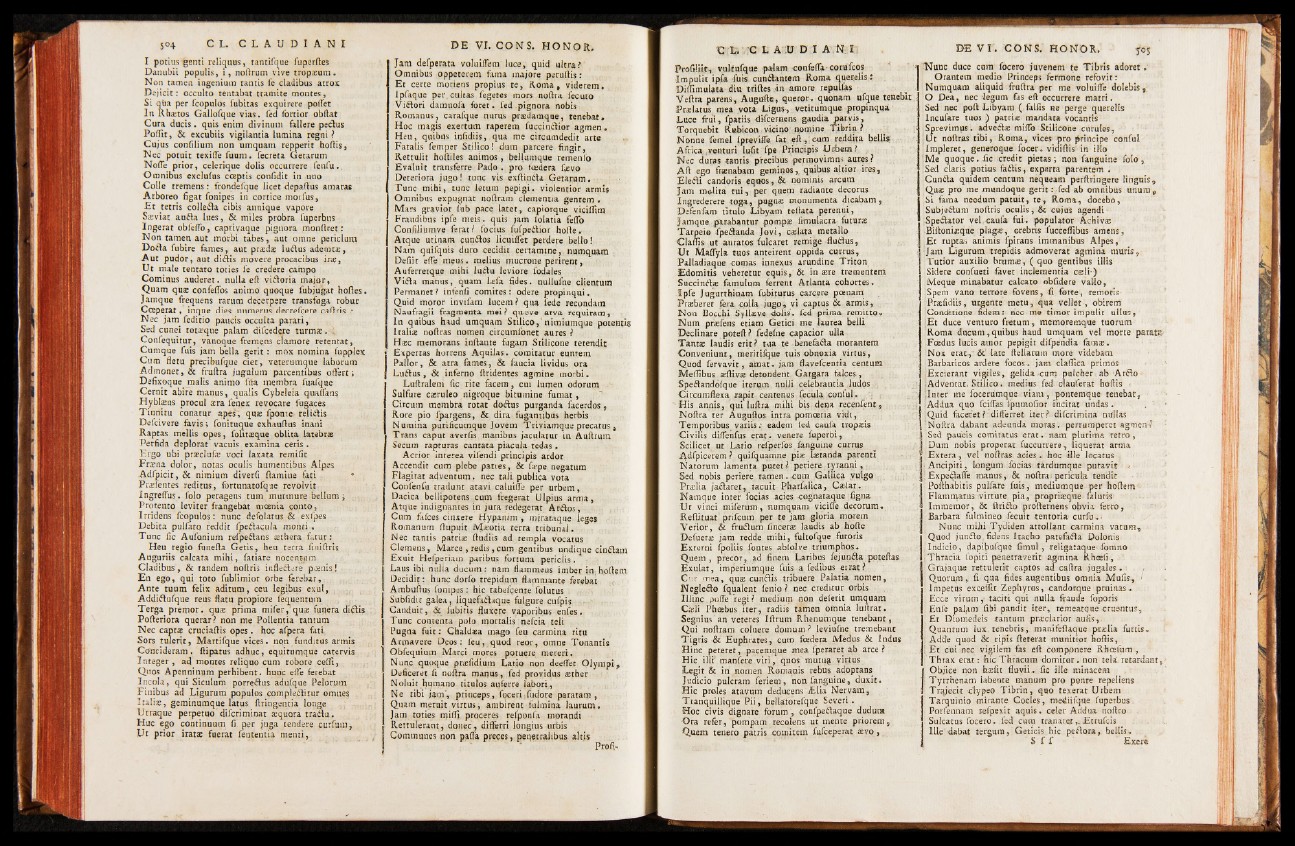 504 CL. CLAUDIANI
I potius genti reliquus, tantiſque ſuperſtes
Danubii populis, i, noſtrum vive tropæum.
Non tamen ingenium tantis ſe cladibus atrox
Dejicit: occulto tentabat tramite montes,
Si qua per ſcopulos ſubitas exquirere poſſet
In Rhætos Gallofque vias. ſed fortior obſtat
Cura ducis. quis enim divinum fallere pectus
Poſſit, & excubiis vigilantia lumina regni?
Cujus conſilium non umquam repperit hoſtis,
Nec potuit texiſſe ſuum. ſecreta Getarum
Noſſe prior, celerique dolis occurrere ſenſu.
Omnibus excluſus cœptis conſidit in uno
Colle tremens: frondeſque licet depaſtus amaras
Arboreo figat ſonipes in cortice morſus,
Et tetris collecta cibis annique vapore
Sæviat aucta lues, & miles probra ſuperbus
Ingerat obſeſſo, captivaque pignora monſtret:
Non tamen aut morbi tabes, aut omne periclum
Docta ſubire fames, aut prædæ luctus ademtæ,
Aut pudor, aut dictis movere procacibus iræ,
Ut male tentato toties ſe credere campo
Cominus auderet. nulla eſt victoria major,
Quam quæ confeſſos animo quoque ſubjugat hoſtes.
Jamque frequens rarum decerpere transfuga robur
Cœperat, inque dies numerus decreſcere caſtris:
Nec jam ſeditio paucis occulta parati,
Sed cunei totæque palam diſcedere turmæ.
Conſequitur, vanoque fremens clamore retentat,
Cumque ſuis jam bella gerit: mox nomina ſupplex
Cum fletu precibuſque ciet, veterumque laborum
Admonet, & fruſtra jugulum parcentibus offert;
Defixoque malis animo ſua membra ſuaſque
Cernit abire manus, qualis Cybeleia quaſſans
Hyblæus procul æra ſenex revocare fugaces
Tinnitu conatur apes, quæ ſponte relictis
Deſcivere favis; ſonituque exhauſtus inani
Raptas mellis opes, ſolitæque oblita latebræ
Perfida deplorat vacuis examina ceris.
Ergo ubi præcluſæ voci laxata remiſit
Fræna dolor, notas oculis humentibus Alpes
Adſpicit, & nimium diverſi ſtamine fati
Præſentes reditus, fortunatoſque revolvit
Ingreſſus. ſolo peragens tum murmure bellum;
Protento leviter frangebat mœnia conto,
Irridens ſcopulos: nunc deſolatus & expes
Debita pulſato reddit ſpectacula monti.
Tunc ſic Auſonium reſpectans æthera fatur:
Heu regio funeſta Getis, heu terra ſiniſtris
Auguriis calcata mihi, ſatiare nocentum
Cladibus, & tandem noſtris inflectere pœnis!
En ego, qui toto ſublimior orbe ferebar,
Ante tuum felix aditum, ceu legibus exul,
Addictuſque reus flatu propiore ſequentum
Terga premor. quæ prima miſer, quæ funera dictis
Poſteriora querar? non me Pollentia tantum
Nec captæ cruciaſtis opes. hoc aſpera fati
Sors tulerit, Martiſque vices. non funditus armis
Concideram. ſtipatus adhuc, equitumque catervis
Integer, ad montes reliquo cum robore ceſſi,
Quos Apenninum perhibent. hunc eſſe ferebat
Incola, qui Siculum porrectus aduſque Pelorum
Finibus ad Ligurum populos complectitur omnes
Italiæ, geminumque latus ſtringentia longe
Utraque perpetuo diſcriminat æquora tractu.
Huc ego continuum ſi per juga tendere curſum,
Ut prior iratæ fuerat ſententia menti,
DE VI. CONS. HONOR.
Jam deſperata voluiſſem luce, quid ultra?
Omnibus oppeterem fama majore peruſtis:
Et certe moriens propius te, Roma, viderem.
Ipſaque per cultas ſegetes mors noſtra ſecuto
Victori damnoſa foret. ſed pignora nobis
Romanus, caraſque nurus prædamque, tenebat.
Hoc magis exertum raperem ſuccinctior agmen.
Heu, quibus inſidiis, qua me circumdedit arte
Fatalis ſemper Stilico! dum parcere fingit,
Rettulit hoſtiles animos, bellumque remenſo
Evaluit transferre Pado. pro fœdera ſævo
Deteriora jugo! tunc vis exſtincta Getarum.
Tunc mihi, tunc letum pepigi. violentior armis
Omnibus expugnat noſtram clementia gentem.
Mars gravior ſub pace latet, capiorque viciſſim
Fraudibus ipſe meis. quis jam ſolatia feſſo
Conſiliumve ferat? ſocius ſuſpectior hoſte.
Atque utinam cunctos licuiſſet perdere bello!
Nam quiſquis duro cecidit certamine, numquam
Deſiit eſſe meus. melius mucrone perirent,
Auferrerque mihi luctu leviore ſodales
Victa manus, quam læſa fides. nulluſne clientum
Permanet? infenſi comites: odere propinqui.
Quid moror inviſam lucem? qua ſede recondam
Naufragii fragmenta mei? quæve arva requiram,
In quibus haud umquam Stilico, nimiumque potentis
Italiæ noſtras nomen circumſonet aures?
Hæc memorans inſtante fugam Stilicone tetendit
Expertas horrens Aquilas. comitatur euntem
Pallor, & atra fames, & ſaucia lividus ora
Luctus, & inferno ſtridentes agmine morbi.
Luſtralem ſic rite facem, cui lumen odorum
Sulfure cæruleo nigroque bitumine fumat,
Circum membra rotat doctus purganda ſacerdos,
Rore pio ſpargens, & dira fugantibus herbis
Numina purificumque Jovem Triviamque precatus,
Trans caput averſis manibus jaculatur in Auſtrum
Secum rapturas cantata piacula tedas.
Acrior interea viſendi principis ardor
Accendit cum plebe patres, & ſæpe negatum
Flagitat adventum. nec tali publica vota
Conſenſu tradunt atavi caluiſſe per urbem,
Dacica bellipotens cum fregerat Ulpius arma,
Atque indignantes in jura redegerat Arctos,
Cum faſces cinxere Hypanim, mirataque leges
Romanum ſtupuit Mæotia terra tribunal.
Nec tantis patriæ ſtudiis ad templa vocatus
Clemens, Marce, redis, cum gentibus undique cinctam
Exuit Heſperiam paribus fortuna periclis.
Laus ibi nulla ducum: nam flammeus imber in hoſtem
Decidit: hunc dorſo trepidum flammante ferebat
Ambuſtus ſonipes: hic tabeſcente ſolutus
Subſidit galea, liquefactaque fulgure cuſpis
Canduit, & ſubitis fluxere vaporibus enſes.
Tunc contenta polo mortalis neſcia teli
Pugna fuit: Chaldæa mago ſeu carmina ritu
Armavere Deos: ſeu, quod reor, omne Tonantis
Obſequium Marci mores potuere mereri.
Nunc quoque præſidium Latio non deeſſet Olympi,
Deficeret ſi noſtra manus, ſed providus æther
Noluit humano titulos auferre labori,
Ne tibi jam, princeps, ſoceri ſudore paratam,
Quam meruit virtus, ambirent fulmina laurum.
Jam toties miſſi proceres reſponſa morandi
Rettulerant, donec, differri longius urbis
Communes non paſſa preces, penetralibus altis
Profi-
CL. CLAUDIANI
Proſiliit, vultuſque palam confeſſa coruſcos
Impulit ipſa ſuis cunctantem Roma querelis:
Diſſimulata diu triſtes in amore repulſas
Veſtra parens, Auguſte, queror. quonam uſque tenebit
Prælatus mea vota Ligus, vetitumque propinqua
Luce frui, ſpatiis diſcernens gaudia parvis,
Torquebit Rubicon vicino nomine Tibrin?
Nonne ſemel ſpreviſſe ſat eſt, cum reddita bellis
Africa venturi luſit ſpe Principis Urbem?
Nec duras tantis precibus permovimus aures?
Aſt ego frænabam geminos, quibus altior ires,
Electi candoris equos, & nominis arcum
Jam molita tui, per quem radiante decorus
Ingrederere toga, pugnæ monumenta dicabam,
Defenſam titulo Libyam teſtata perenni,
Jamque parabantur pompæ ſimulacra futuræ
Tarpeio ſpectanda Jovi, cælata metallo
Claſſis ut auratos ſulcaret remige fluctus,
Ut Maſſyla tuos anteirent oppida currus,
Palladiaque comas innexus arundine Triton
Edomitis veheretur equis, & in ære trementem
Succinctæ famulum ferrent Atlanta cohortes.
Ipſe Jugurthinam ſubiturus carcere pœnam
Præberet fera colla jugo, vi captus & armis,
Non Bocchi Syllæve dolis. ſed prima remitto.
Num præſens etiam Getici me laurea belli
Declinare poteſt? ſedeſne capacior ulla
Tantæ laudis erit? tua te benefacta morantem
Conveniunt, meritiſque tuis obnoxia virtus,
Quod ſervavit, amat. jam flaveſcentia centum
Meſſibus æſtivæ detondent Gargara falces,
Spectandoſque iterum nulli celebrantia ludos
Circumflexa rapit centenos ſecula conſul.
His annis, qui luſtra mihi bis dena recenſent,
Noſtra ter Auguſtos intra pomœria vidi,
Temporibus variis: eadem ſed cauſa tropæis
Civilis diſſenſus erat. venere ſuperbi,
Scilicet ut Latio reſperſos ſanguine currus
Adſpicerem? quiſquamne piæ lætanda parenti
Natorum lamenta putet? periere tyranni,
Sed nobis periere tamen. cum Gallica vulgo
Prælia jactaret, tacuit Pharſalica, Cæſar.
Namque inter ſocias acies cognataque ſigna
Ut vinci miſerum, numquam viciſſe decorum.
Reſtituat priſcum per te jam gloria morem
Verior, & fructum ſinceræ laudis ab hoſte
Deſuetæ jam redde mihi, fultoſque furoris
Externi ſpoliis fontes abſolve triumphos.
Quem, precor, ad finem Laribus ſejuncta poteſtas
Exulat, imperiumque ſuis a ſedibus errat?
Cur mea, quæ cunctis tribuere Palatia nomen,
Neglecto ſqualent ſenio? nec creditur orbis
Illinc poſſe regi? medium non deſerit umquam
Cæli Phœbus iter, radiis tamen omnia luſtrat.
Segnius an veteres Iſtrum Rhenumque tenebant,
Qui noſtram coluere domum? leviuſne tremebant
Tigris & Euphrates, cum fœdera Medus & Indus
Hinc peteret, pacemque mea ſperaret ab arce?
Hic illi manſere viri, quos mutua virtus
Legit & in nomen Romanis rebus adoptans
Judicio pulcram ſeriem, non ſanguine, duxit.
Hic proles atavum deducens Ælia Nervam,
Tranquillique Pii, bellatoreſque Severi.
Hoc civis dignare forum, conſpectaque dudum
Ora refer, pompam recolens ut mente priorem,
Quem tenero patris comitem ſuſceperat ævo,
DE VI. CONS. HONOR. 505
Nunc duce cum ſocero juvenem te Tibris adoret.
Orantem medio Princeps ſermone refovit:
Numquam aliquid fruſtra per me voluiſſe dolebis,
O Dea, nec legum fas eſt occurrere matri.
Sed nec poſt Libyam (falſis ne perge querelis
Incuſare tuos) patriæ mandata vocantis
Sprevimus. advectæ miſſo Stilicone curules,
Ut noſtras tibi, Roma, vices pro principe conſul
Impleret, generoque ſocer. vidiſtis in illo
Me quoque. ſic credit pietas; non ſanguine ſolo,
Sed claris potius factis, experta parentem.
Cuncta quidem centum nequeam perſtringere linguis,
Quæ pro me mundoque gerit: ſed ab omnibus unum,
Si fama neodum patuit, te, Roma, docebo,
Subjectum noſtris oculis, & cujus agendi
Spectator vel cauſa fui. populator Achivæ
Biſtoniæque plagæ, crebris ſucceſſibus amens,
Et ruptas animis ſpirans immanibus Alpes,
Jam Ligurum trepidis admoverat agmina muris,
Tutior auxilio brumæ, (quo gentibus illis
Sidere conſueti favet inclementia cæli)
Meque minabatur calcato obſidere vallo,
Spem vano terrore fovens, ſi forte, remotis
Præſidiis, urgente metu, qua vellet, obirem
Conditione fidem: nec me timor impulit ullus,
Et duce venturo fretum, memoremque tuorum
Roma ducum, quibus haud umquam vel morte paratæ
Fœdus lucis amor pepigit diſpendia famæ.
Nox erat, & late ſtellarum more videbam
Barbaricos ardere focos. jam claſſica primos
Excierant vigiles, gelida cum pulcher ab Arcto
Adventat Stilico. medius ſed clauſerat hoſtis
Inter me ſocerumque viam, pontemque tenebat,
Addua quo ſciſſas ſpumoſior incitat undas.
Quid faceret? differret iter? diſcrimina nullas
Noſtra dabant adeunda moras. perrumperet agmen?
Sed paucis comitatus erat. nam plurima retro,
Dum nobis properat ſuccurrere, liquerat arma
Extera, vel noſtras acies. hoc ille locatus
Ancipiti, longum ſocias tardumque putavit
Expectaſſe manus, & noſtra pericula tendit
Poſthabitis pulſare ſuis, mediumque per hoſtem
Flammatus virtute pia, propriæque ſalutis
Immemor, & ſtricto proſternens obvia ferro,
Barbara fulmineo ſecuit tentoria curſu.
Nunc mihi Tydiden attollant carmina vatum,
Quod juncto fidens Ithaco patefacta Dolonis
Indicio, dapibuſque ſimul, religataque ſomno
Thracia ſopiti penetraverit agmina Rhœſi,
Grajaque rettulerit captos ad caſtra jugales.
Quorum, ſi qua fides augentibus omnia Muſis,
Impetus exceſſit Zephyros, candorque pruinas.
Ecce virum, taciti qui nulla fraude ſoporis
Enſe palam ſibi pandit iter, remeatque cruentus,
Et Diomedeis tantum præclarior auſis,
Quantum lux tenebris, manifeſtaque prælia furtis.
Adde quod & ripis ſteterat munitior hoſtis,
Et cui nec vigilem fas eſt componere Rhœſum,
Thrax erat: hic Thracum domitor. non tela retardant,
Objice non hæſit fluvii. ſic ille minacem
Tyrrhenam labente manum pro ponte repellens
Trajecit clypeo Tibrin, quo texerat Urbem
Tarquinio mirante Cocles, mediiſque ſuperbus
Porſennam reſpexit aquis. celer Addua noſtro
Sulcatus ſocero. ſed cum tranaret, Etruſcis
Ille dabat tergum, Geticis hic pectora, bellis.
S ſ ſ Exere